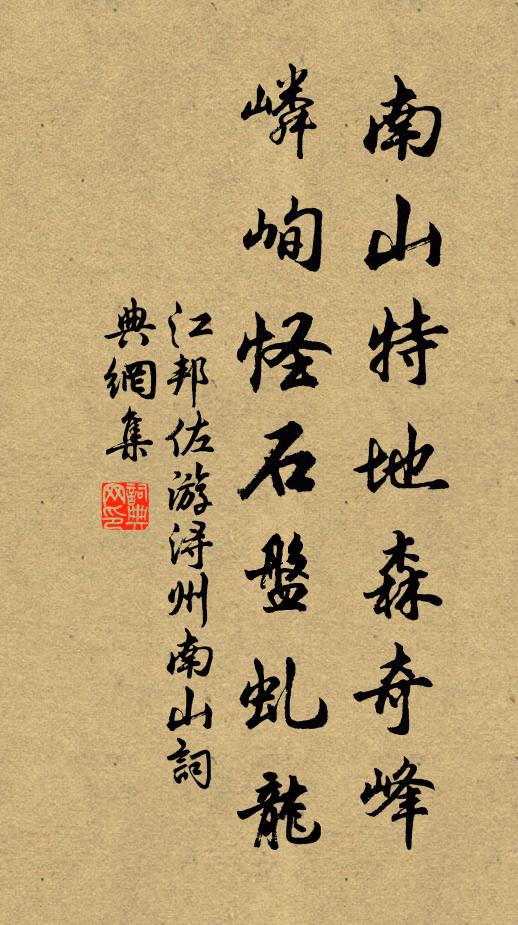 南山特地森奇峰
嶙峋怪石盤虬龍
江邦佐游浔州南山詞
典網集
詞典网印